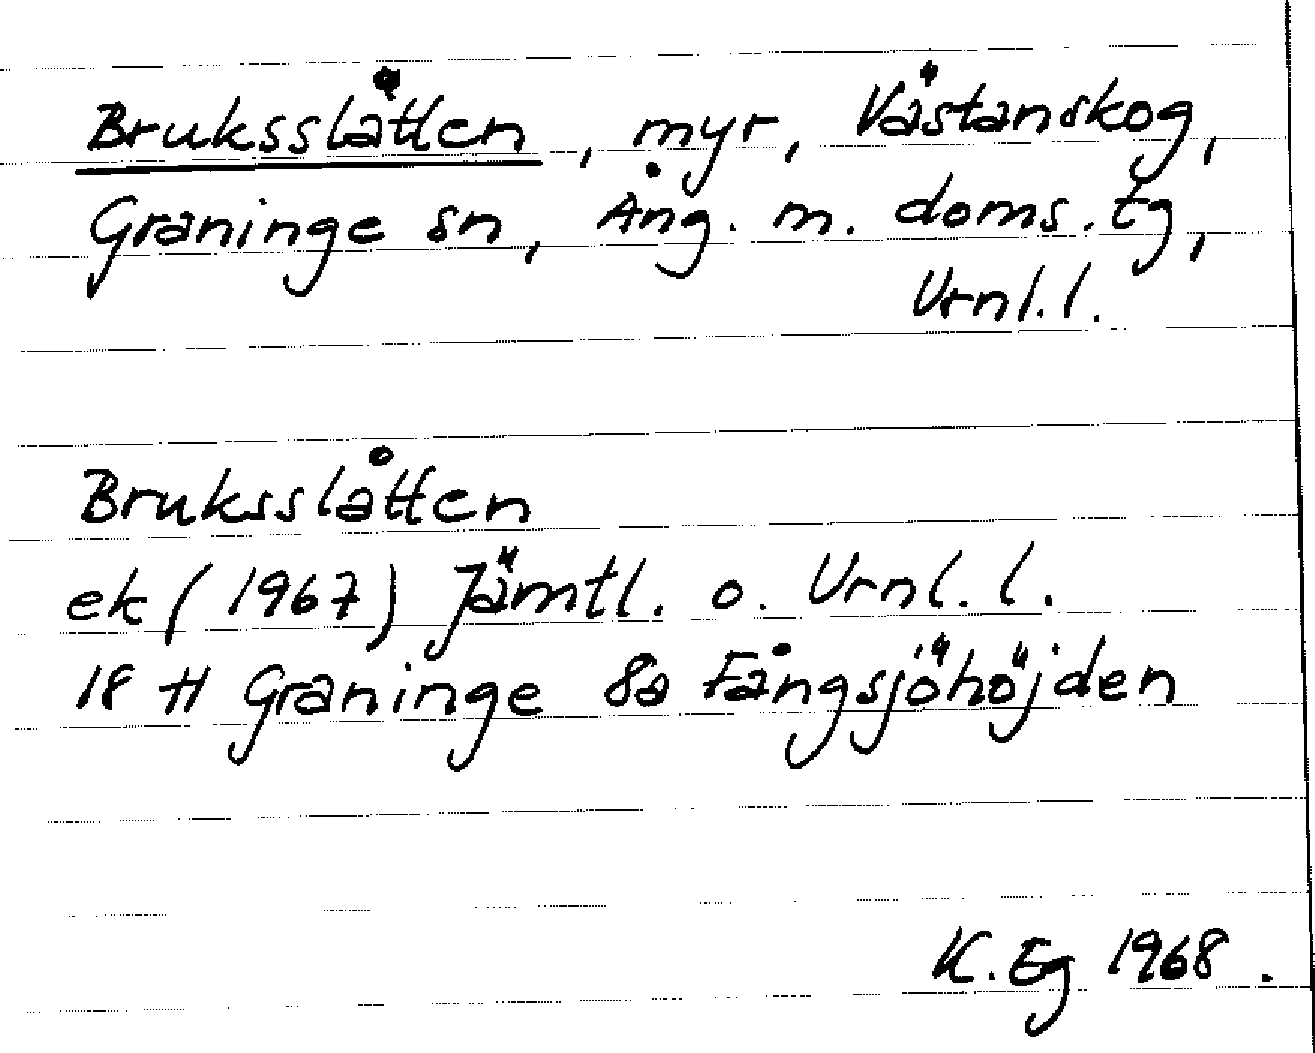 Bruksslåtten, myr, Västanskog,
Graninge sn, Ång. m. doms. tg,
Vrnl. l.
Bruksslåtten
ek (1967) Jämtl. o. Vrnl. l.
18 H Graninge 8a Fångsjöhöjden
K. Eg 1968.